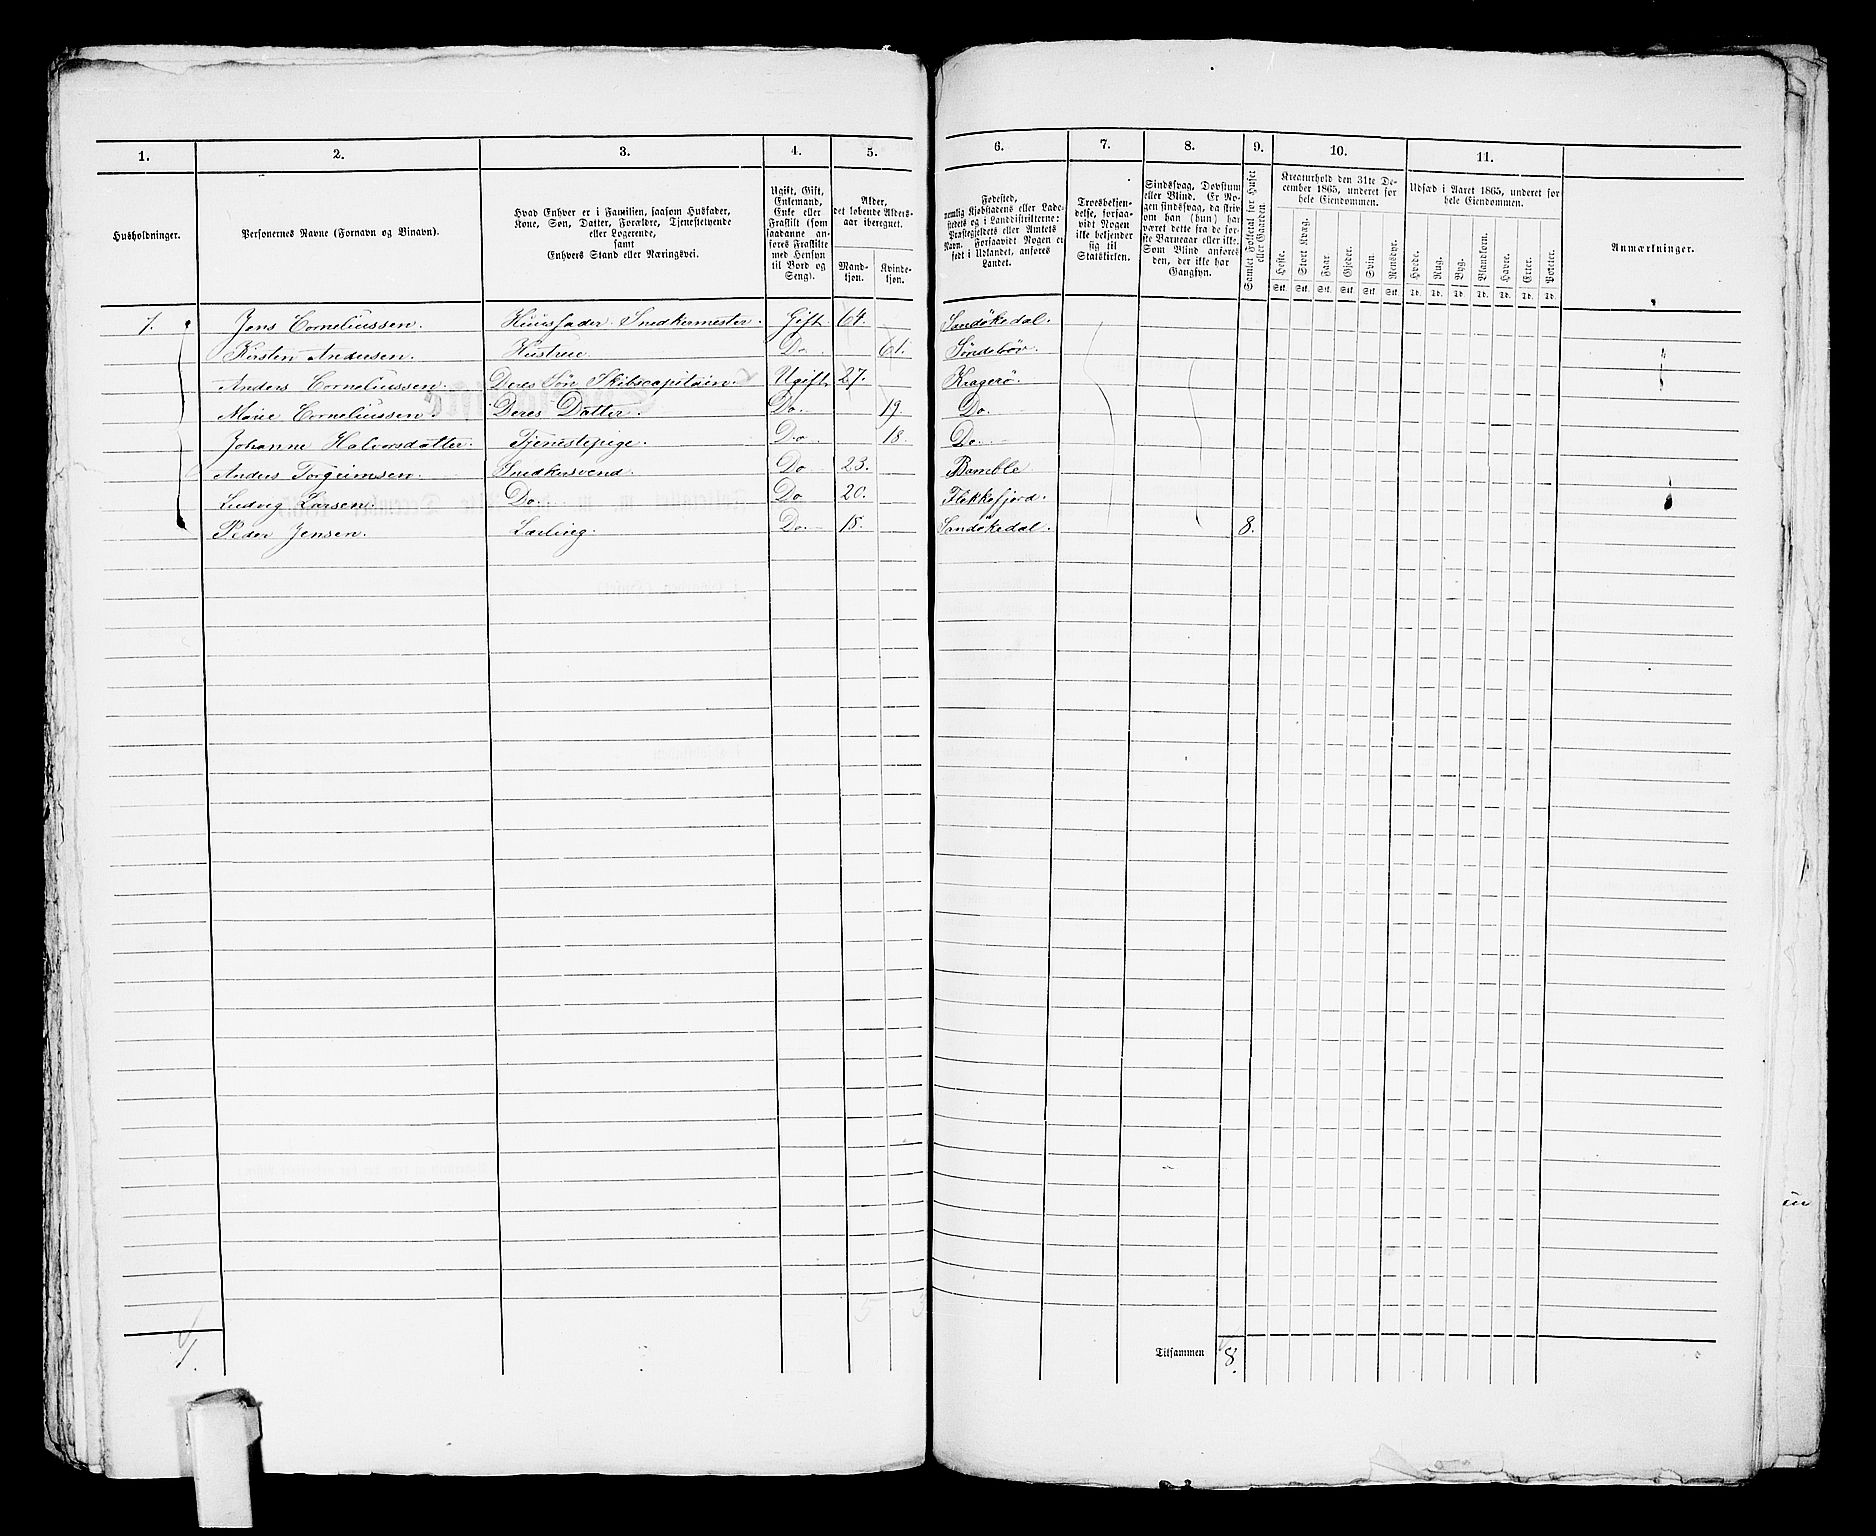 1. 2. 3. 4. 5. 6. 7. 8. 9. 10. 11.
Husholdninger.
Personernes Navne (Fornavn og Binavn).
Hvad Enhver er i Familien, saasom Husfader,
Kone, Søn, Datter, Forældre, Tjenestetyende
eller Logerende,
samt
Enhvers Stand eller Næringsvei.
Ugift, Gift,
Enkemand,
Enke eller
Fraskilt (som
saadanne an-
føres Fraskilte
med Hensyn
til Bord og
Seng).
Alder,
det løbende Alders-
aar iberegnet.
Mand-
kjøn.
Kvinde-
kjøn.
Fødested,
nemlig Kjøbstadens eller Lade-
stedets og i Landdistrikterne:
Præstegjeldets eller Amtets
Navn. Forsaavidt Nogen er
født i Udlandet, anføres
Landet.
Troesbekjen-
delse, forsaa-
vidt Nogen
ikke bekjender
sig til
Statskirken.
Sindssvag, Døvstum
eller Blind. Er No-
gen sindssvag, da skriv
om han (hun) har
været dette fra de før-
ste Barneaar eller ikke.
Som Blind anføres
den, der ikke har
Gangsyn.
Samlet Folketal for Huset
eller Gaarden.
Kreaturhold den 31te De-
cember 1865, underet for
hele Eiendommen.
Heste. Stort Kvæg. Faar. Gjeder. Svin. Rensdyr.
Stk. Stk. Stk. Stk. Stk. Stk.
Udsæd i Aaret 1865, underet for
hele Eiendommen.
Hvede. Rug. Byg. Blandkorn. Havre. Erter. Poteter.
Td. Td. Td. Td. Td. Td. Td.
Anmærkninger.
1. Jens Corneliussen. Huusfader. Snedkermester. Gift. 64. Sandøkedal.
Kirsten Andersen. Hustrue. Do. 61. Søndebøv.
Anders Corneliussen. Deres Søn Skibscapitain. Ugift 27. Kragerø.
Marie Corneliussen. Deres Datter. Do. 19. Do.
Johanne Halvorsdatter. Tjenestepige. Do 18. Do.
Anders Torgeimsen. Snedkersvend. Do 23. Bamble
Ludvig Larsen. Do. Do 20. Flekkefjord.
Peder Jensen. Lærling. Do. 18. Sandøkedal. 8.
5 3
1.
Tilsammen 8.